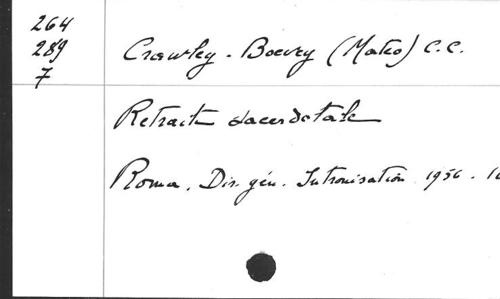 264
289
7
Crawley-Boevey (Mateo) C.C.
Retraite sacerdotale
Roma. Dir. gén. Intronisation 1956.